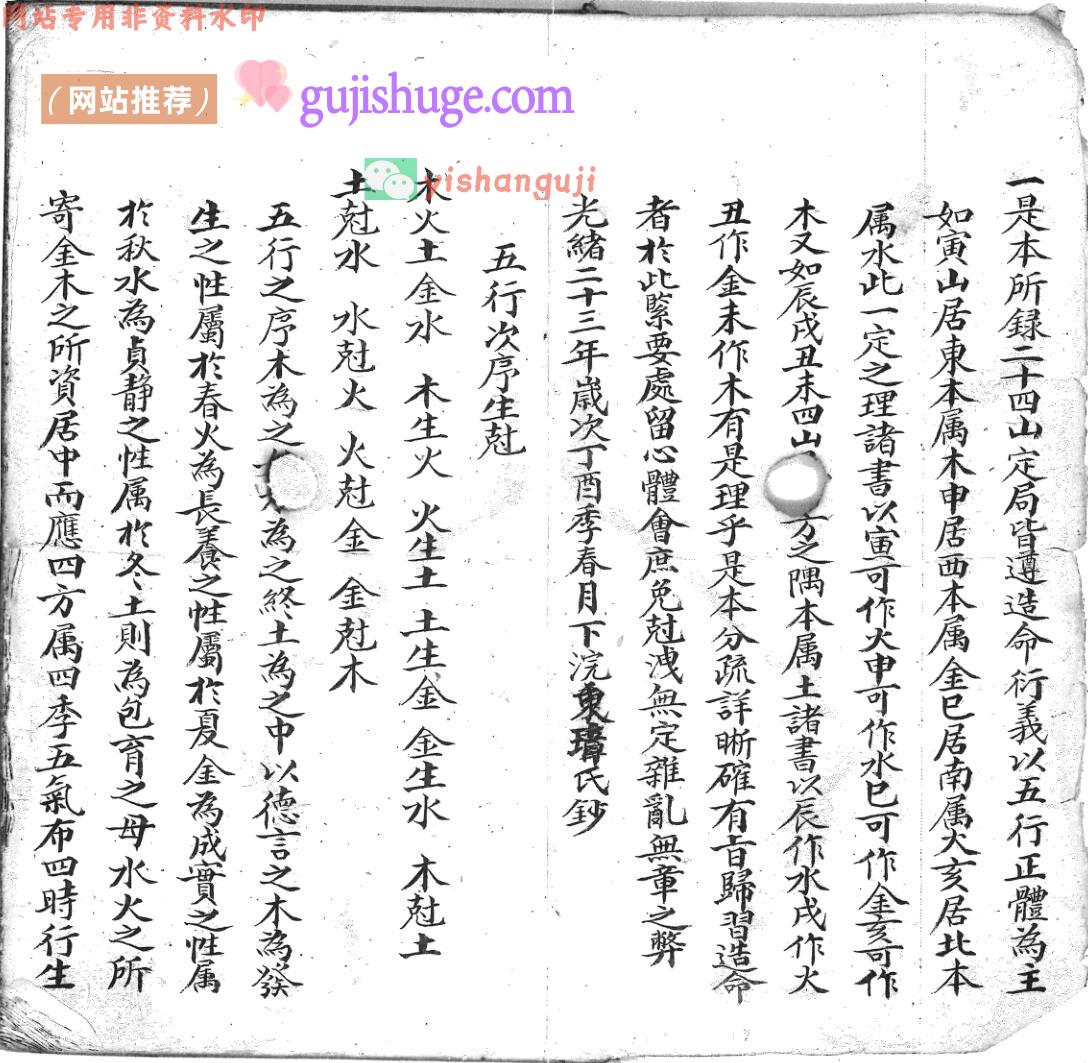 网站专用非资料水印
（网站推荐） gujishuge.com
yishanguji
一是本所録二十四山定局皆遵造命衍義以五行正體為主
如寅山居東本属木申居西本属金巳居南属火亥居北本
属水此一定之理諸書以寅可作火申可作水巳可作金亥可作
木又如辰戌丑未四山方之隅本属土諸書以辰作水戌作火
丑作金未作木有是理乎是本分疏詳晰確有旨歸習造命
者於此緊要處留心體會庶免尅洩無定雜亂無章之弊
光緒二十三年歲次丁酉季春月下浣東璋氏鈔
五行次序生尅
木火土金水 木生火 火生土 土生金 金生水 木尅土
土尅水 水尅火 火尅金 金尅木
五行之序木為之為之終土為之中以德言之木為發
生之性屬於春火為長養之性屬於夏金為成實之性属
於秋水為貞静之性属於冬土則為包育之母水火之所
寄金木之所資居中而應四方属四季五氣布四時行生